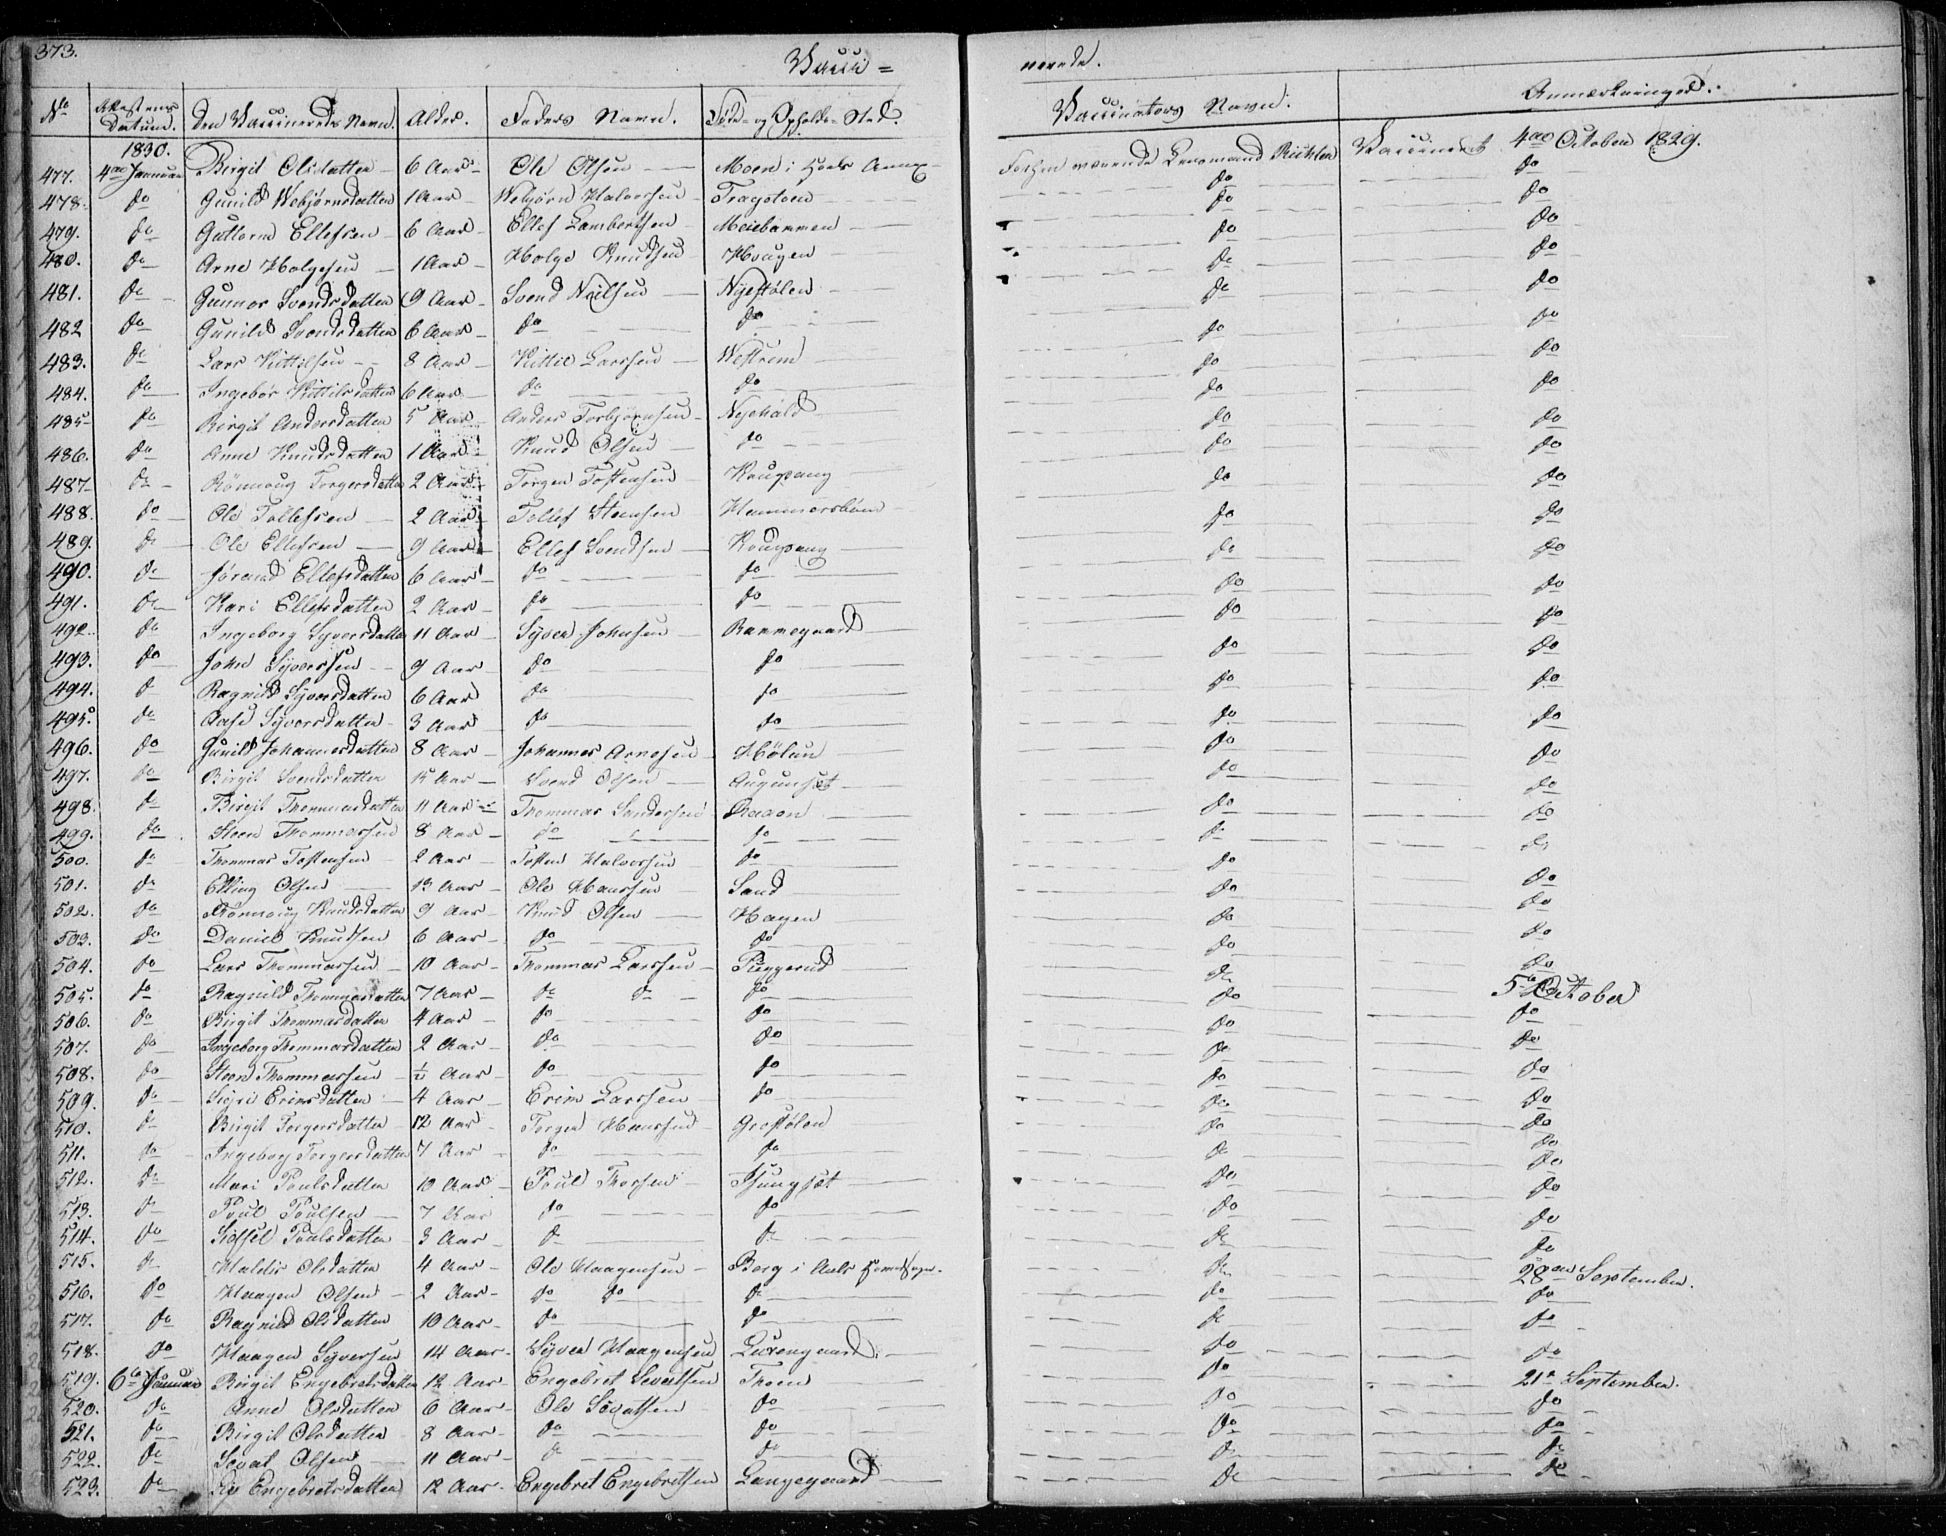 373. Vacci= nerede.
No Attestens Datum. Den Vaccineredes Navn. Alder. Faders Navn. Føde- og Opholds-Sted. Vaccinators Navn. Anmærkninger.
1830.
477. 4de Januar Birgit Olsdatter 6 Aar Ole Olsen Moen i Hols Annex Forhen værende Lensmand Vaccineret 4de October 1829.
478. do Gunild Webjørnsdatter 1 Aar Webjørn Halvorsen do do
479. do Guttorm Ellefsen 6 Aar Ellef Lambertsen do do
480. do Arne Holgesen 1 Aar Holge Knudsen Hougen do do
481. do Gunnor Svendsdatter 9 Aar Svend Neilsen Nystølen do do
482 do Gunild Svendsdatter 6 Aar do do do do
483. do Lars Kittilsen 8 Aar Kittil Larssen Westrem do do
484. do Ingebor Kittilsdatter 6 Aar do do do do
485 do Birgit Andersdatter 5 Aar Anders Torbjørnsen do do
486. do Anne Knudsdatter 1 Aar Knud Olsen do do do
487 do Rönnoug Torgersdatter 2 Aar Torger Tostensen do do
488. do Ole Tollefsen 2 Aar Tollef Steensen Hammersbøen do do
489. do Ole Ellefsen 9 Aar Ellef Svendsen do do
490. do Jörand Ellefsdatter 6 Aar do do do do
491. do Kari Ellefsdatter 2 Aar do do do do
492. do Ingeborg Syversdatter 11 Aar Syver Johnsen Rammegaard do do
493. do John Syversen 9 Aar do do do do
494. do Ragnild Syversdatter 6 Aar do do do do
495. do Aase Syversdatter 3 Aar do do do do
496. do Gunild Johannesdatter 8 Aar Johannes Arnesen Hølun do do
497. do Birgit Svendsdatter Aar Svend Olsen Augunset do do
498. do Birgit Thommasdatter 11 Aar Thommas Sandersen do do
499. do Steen Thommassen 8 Aar do do do do
500. do Thommas Tostensen 2 Aar Tosten Halvorsen do do do
501. do Elling Olsen 13 Aar Ole Hanssen Sand do do
502. do Rönnoug Knudsdatter 9 Aar Knud Olsen Hagen do do
503. do Daniel Knudsen 6 Aar do do do do
504. do Lars Thommassen 10 Aar Thommas Larssen do do
505. do Ragnild Thommasdatter 7 Aar do do do do 5te October
506. do Birgit Thommasdatter 4 Aar do do do do
507. do Ingeborg Thommasdatter 2 Aar do do do do
508. do Steen Thommassen ½ Aar do do do do
509. do Sigri Erinsdatter 4 Aar Erim Larssen do do do
510. do Birgit Torgersdatter 12 Aar Torger Hanssen Grostølen do do
511. do Ingeborg Torgersdatter 7 Aar do do do do
512. do Mari Poulsdatter 10 Aar Poul Thorsen do do
513. do Poul Poulsen 7 Aar do do do do
514. do Sidsel Poulsdatter 3 Aar do do do do
515. do Haldis Olsdatter 4 Aar Ole Haagensen Berg i Aals Hovedsogn. do 28de September.
516. do Haagen Olsen 2 Aar do do do do do
517. do Ragnild Olsdatter 10 Aar do do do do
518. do Haagen Syversen 14 Aar Syver Haagensen do do
519. 6te Januar Birgit Engebretsdatter 12 Aar Engebret Sevatsen Thoen do 21de September.
520. do Anne Olsdatter 6 Aar Ole Sevatsen do do do
521. do Birgit Olsdatter 8 Aar do do do do
522. do Sevat Olsen 11 Aar do do do do
523. do Engebretsdatter 12 Aar Engebret Engebretsen Langegaard do do